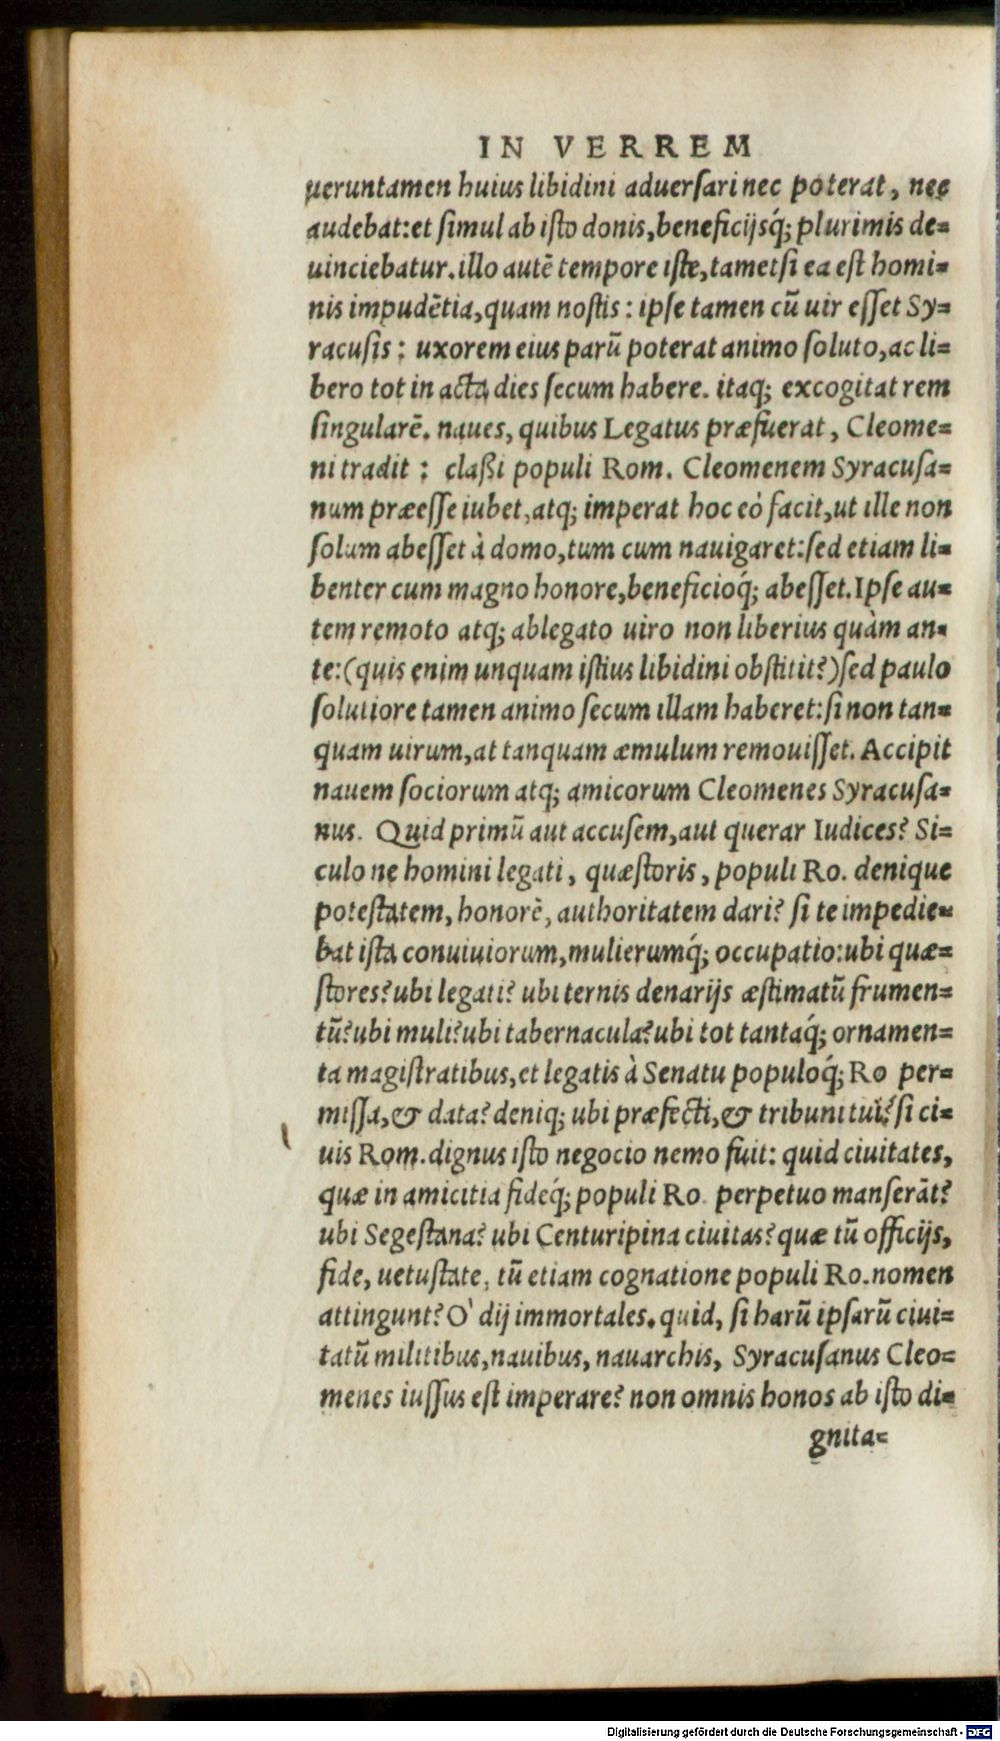 IN VERREM
ueruntamen huius libidini aduersari nec poterat, nec
audebat: et simul ab isto donis, beneficijsq́; plurimis de=
uinciebatur. illo autē tempore iste, tametsi ea est homi=
nis impudētia, quam nostis: ipse tamen cū uir esset Sy=
racusis: uxorem eius parū poterat animo soluto, ac li=
bero tot in acta dies secum habere. itaq; excogitat rem
singularē. naues, quibus Legatus præfuerat, Cleome=
ni tradit: classi populi Rom. Cleomenem Syracusa=
num præesse iubet, atq; imperat hoc eò facit, ut ille non
solum abesset à domo, tum cum nauigaret: sed etiam li=
benter cum magno honore, beneficioq́; abesset. Ipse au=
tem remoto atq; ablegato uiro non liberius quàm an=
te: (quis enim unquam istius libidini obstitit?) sed paulo
solutiore tamen animo secum illam haberet: si non tan=
quam uirum, at tanquam æmulum remouisset. Accipit
nauem sociorum atq; amicorum Cleomenes Syracusa=
nus. Quid primū aut accusem, aut querar Iudices? Si=
culo ne homini legati, quæstoris, populi Ro. denique
potestatem, honorē, authoritatem dari? si te impedie=
bat ista conuiuiorum, mulierumq́; occupatio: ubi quæ=
stores? ubi legati? ubi ternis denarijs æstimatū frumen=
tū? ubi muli? ubi tabernacula? ubi tot tantaq́; ornamen=
ta magistratibus, et legatis à Senatu populoq́; Ro per=
missa, & data? deniq; ubi præfecti, & tribuni tui? si ci=
uis Rom. dignus isto negocio nemo fuit: quid ciuitates,
quæ in amicitia fideq́; populi Ro. perpetuo manserāt?
ubi Segestana? ubi Centuripina ciuitas? quæ tū officijs,
fide, uetustate, tū etiam cognatione populi Ro. nomen
attingunt? O' dij immortales. quid, si harū ipsarū ciui=
tatū militibus, nauibus, nauarchis, Syracusanus Cleo=
menes iussus est imperare? non omnis honos ab isto di=
gnita=
Digitalisierung gefördert durch die Deutsche Forschungsgemeinschaft - DFG